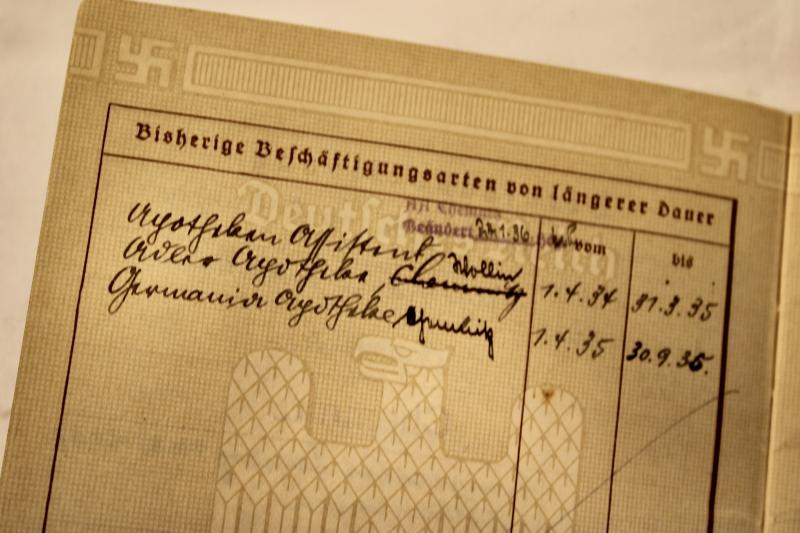 Bisherige Beschäftigungsarten von längerer Dauer
vom bis
Apotheken Assistent
Adler Apotheke, Chemnitz 1.4.34 31.3.35
Germania Apotheke 1.4.35 30.9.36.
AA Chemnitz
Geändert 1.36
Deutsches